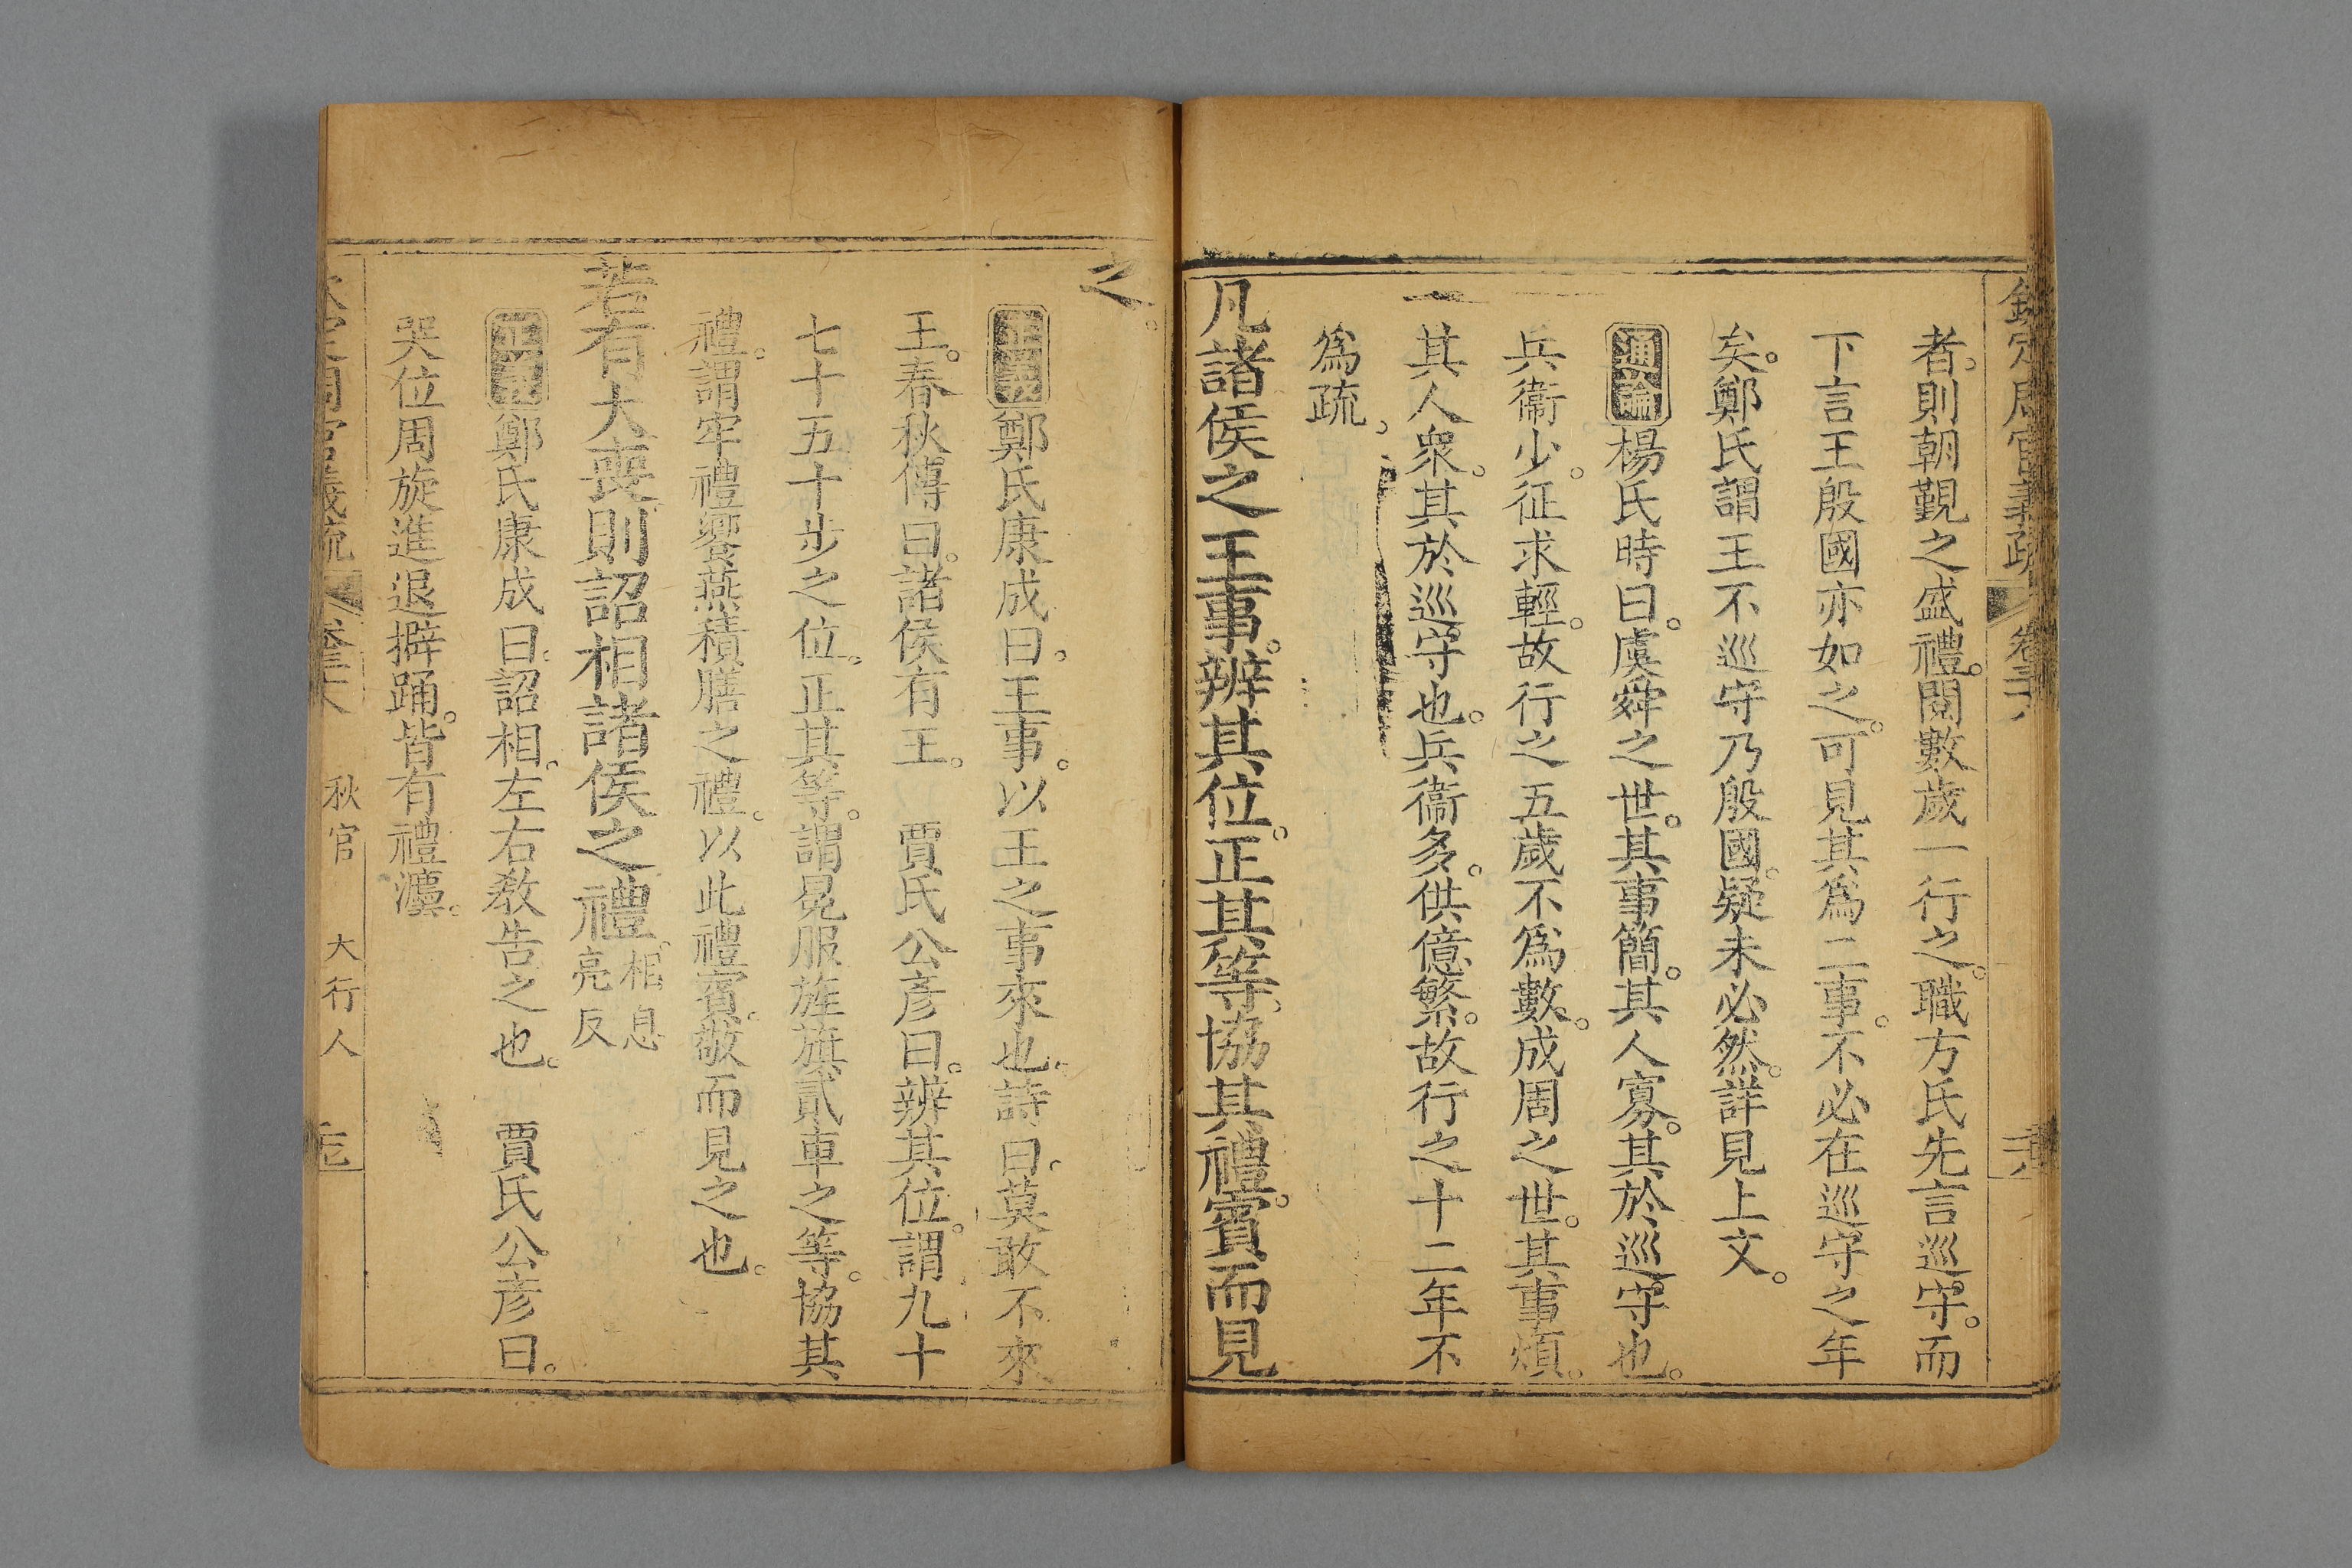 欽定周官義疏 卷三十八
者。則朝覲之盛禮。閱數歲一行之。職方氏先言巡守。而
下言王殷國亦如之。可見其爲二事。不必在巡守之年
矣。鄭氏謂王不巡守乃殷國。疑未必然。詳見上文。
通論楊氏時曰。虞舜之世。其事簡。其人寡。其於巡守也。
兵衞少。征求輕。故行之五歲不爲數。成周之世。其事煩。
其人衆。其於巡守也。兵衞多。供億繁。故行之十二年不
爲疏。
凡諸侯之王事。辨其位。正其等。協其禮。賓而見
之。
正義鄭氏康成曰。王事。以王之事來也。詩曰。莫敢不來
王。春秋傳曰。諸侯有王。 賈氏公彥曰。辨其位。謂九十
七十五十步之位。正其等。謂冕服旌旗貳車之等。協其
禮。謂牢禮饗燕積膳之禮。以此禮賓。敬而見之也。
若有大喪則詔相諸侯之禮。相息亮反
正義鄭氏康成曰。詔相。左右教告之也。 賈氏公彥曰。
哭位周旋進退擗踊。皆有禮灋。
欽定周官義疏 卷三十八 秋官 大行人